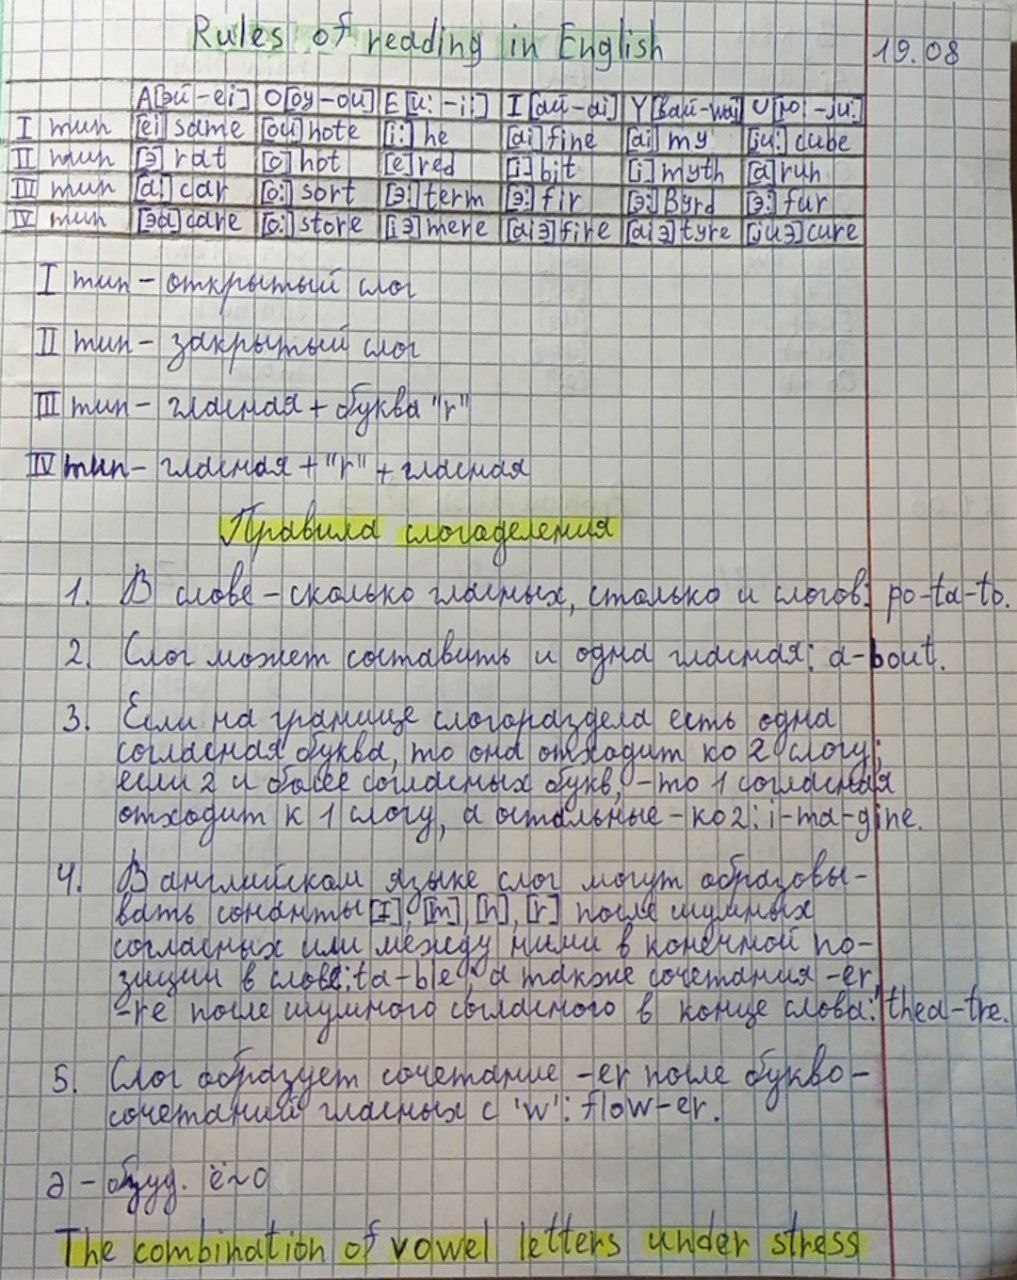 Rules of reading in English 19.08
A[эй-ei] O[оу-ou] E[и:-i:] I[ай-ai] Y[вай-wai] U[ю:-ju:]
I тип [ei] same [ou] note [i:] he [ai] fine [ai] my [ju:] cube
II тип [э] rat [o] not [e] red [i] bit [i] myth [a] run
III тип [a:] car [o:] sort [э:] term [э:] fir [э:] Byrd [э:] fur
IV тип [эа] care [o:] store [iэ] mere [aiэ] fire [aiэ] tyre [juэ] cure
I тип - открытый слог
II тип - закрытый слог
III тип - гласная + буква "r"
IV тип - гласная + "r" + гласная
Правила слогаделения
1. В слове - сколько гласных, столько и слогов: po-ta-to.
2. Слог может составить и одна гласная: a-bout.
3. Если на границе слогораздела есть одна
согласная буква, то она отходит ко 2 слогу;
если 2 и более согласных букв, - то 1 согласная
отходит к 1 слогу, а остальные - ко 2: i-ma-gine.
4. В английском языке слог могут образовы-
вать сонанты [I], [m], [n], [r] после шумных
согласных или между ними в конечной по-
зиции в слове: ta-ble, а также сочетания -er,
-re после шумного согласного в конце слова: thea-tre.
5. Слог образует сочетание -er после букво-
сочетаний гласных с 'w': flow-er.
ə - ё~о
The combination of vowel letters under stress